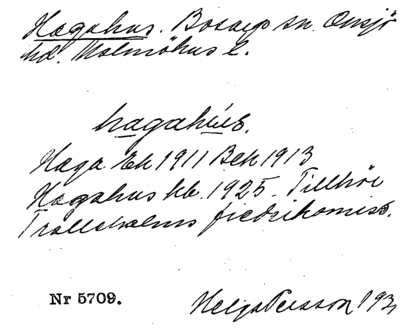 Hagahus. Bosarp sn. Onsjö
hd. Malmöhus l.
hagahús.
Haga Ek 1911 Bek 1913
Hagahus hb. 1925. Tillhör
Trolleholms fideikomiss.
Nr 5709.
Helge Persson 193